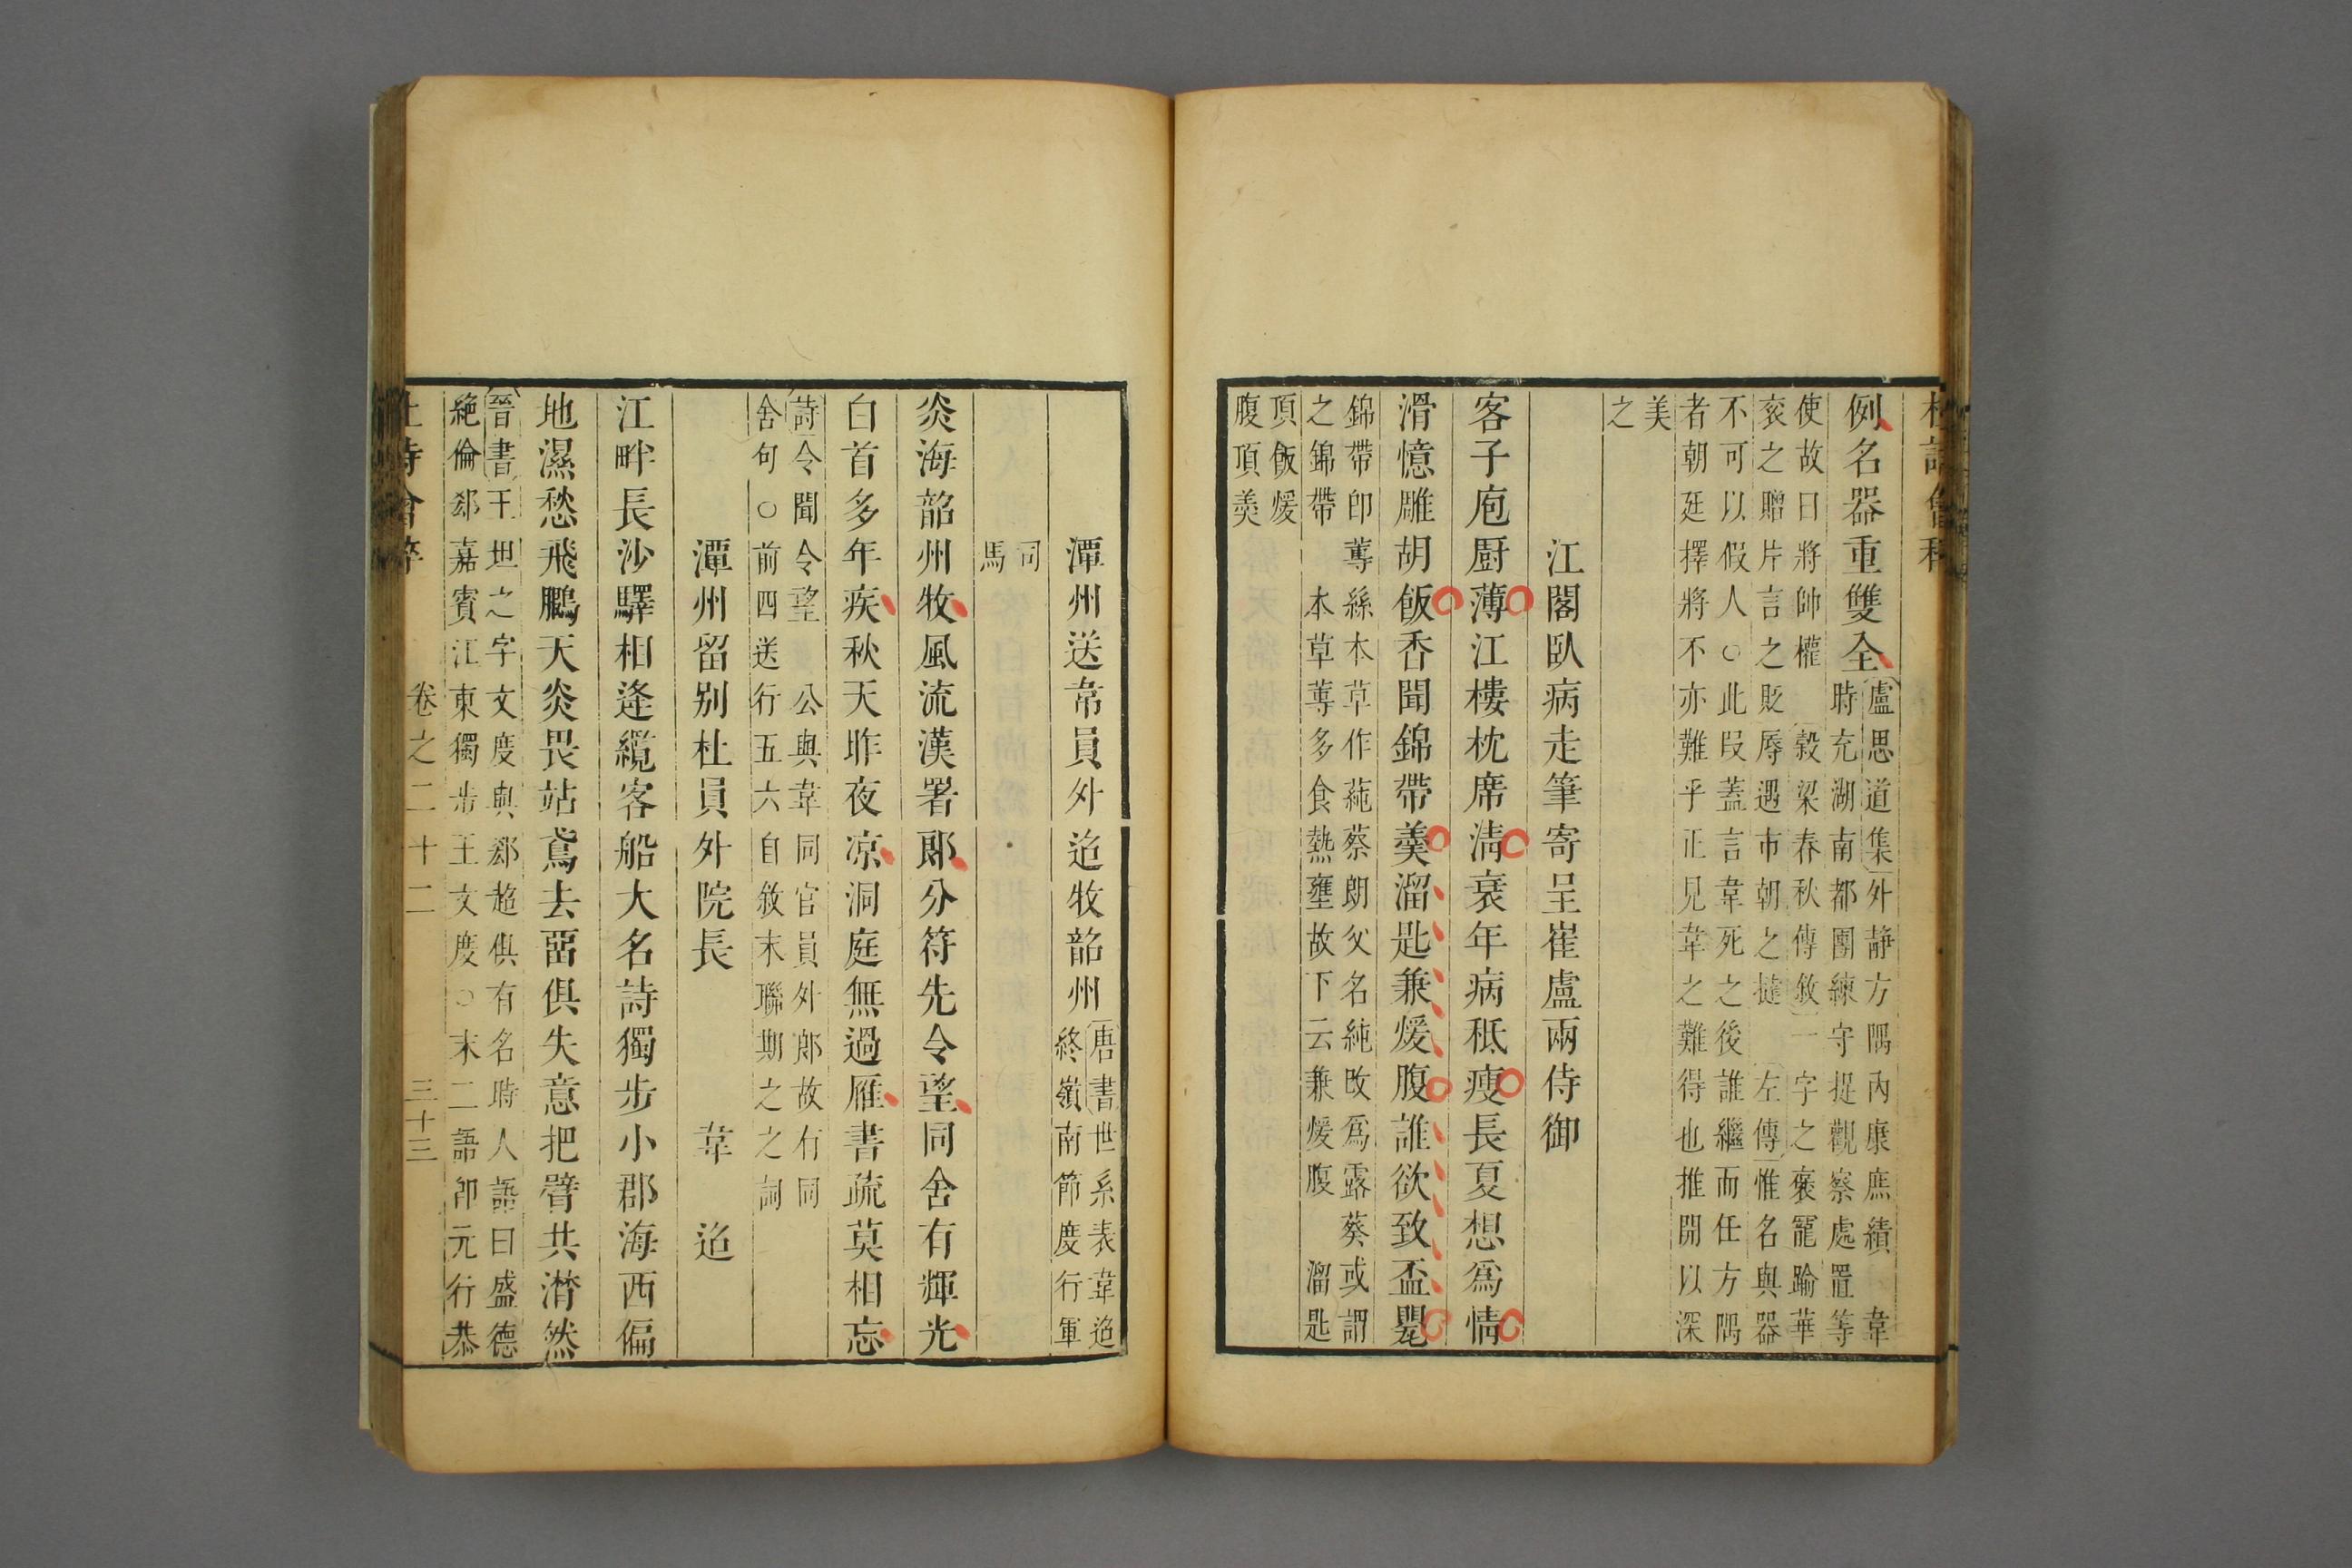 杜詩會稡
例名器重雙全
盧思道集外靜方隅內康庶績 韋
時充湖南都團練守捉觀察處置等
使故曰將帥權 榖梁春秋傳敘一字之褒寵踰華
袞之贈片言之貶辱遇市朝之撻 左傳惟名與器
不可以假人○此叚蓋言韋死之後誰繼而任方隅
者朝廷擇將不亦難乎正見韋之難得也推開以深
美
之
江閣臥病走筆寄呈崔盧兩侍御
客子庖厨薄江樓枕席清衰年病秪瘦長夏想爲情
滑憶雕胡飯香聞錦帶羹溜匙兼煖腹誰欲致盃罌
錦帶卽蓴絲本草作蒓蔡朗父名純改爲露葵或謂
之錦帶 本草蓴多食熱壅故下云兼煖腹 溜匙
頂飯煖
腹頂羹
潭州送韋員外迢牧韶州
唐書世系表韋迢
終嶺南節度行軍
司
馬
炎海韶州牧風流漢署郎分符先令望同舍有輝光
白首多年疾秋天昨夜凉洞庭無過雁書疏莫相忘
詩令聞令望 公與韋同官員外郎故有同
舍句○前四送行五六自敘末聯期之之詞
潭州留别杜員外院長 韋迢
江畔長沙驛相逢纜客船大名詩獨步小郡海西偏
地濕愁飛鵩天炎畏跕鳶去畱俱失意把臂共潸然
晉書王坦之字文度與郗超俱有名時人語曰盛德
絶倫郗嘉賓江東獨步王文度○末二語卽元行恭
杜詩會稡 卷之二十二 三十三